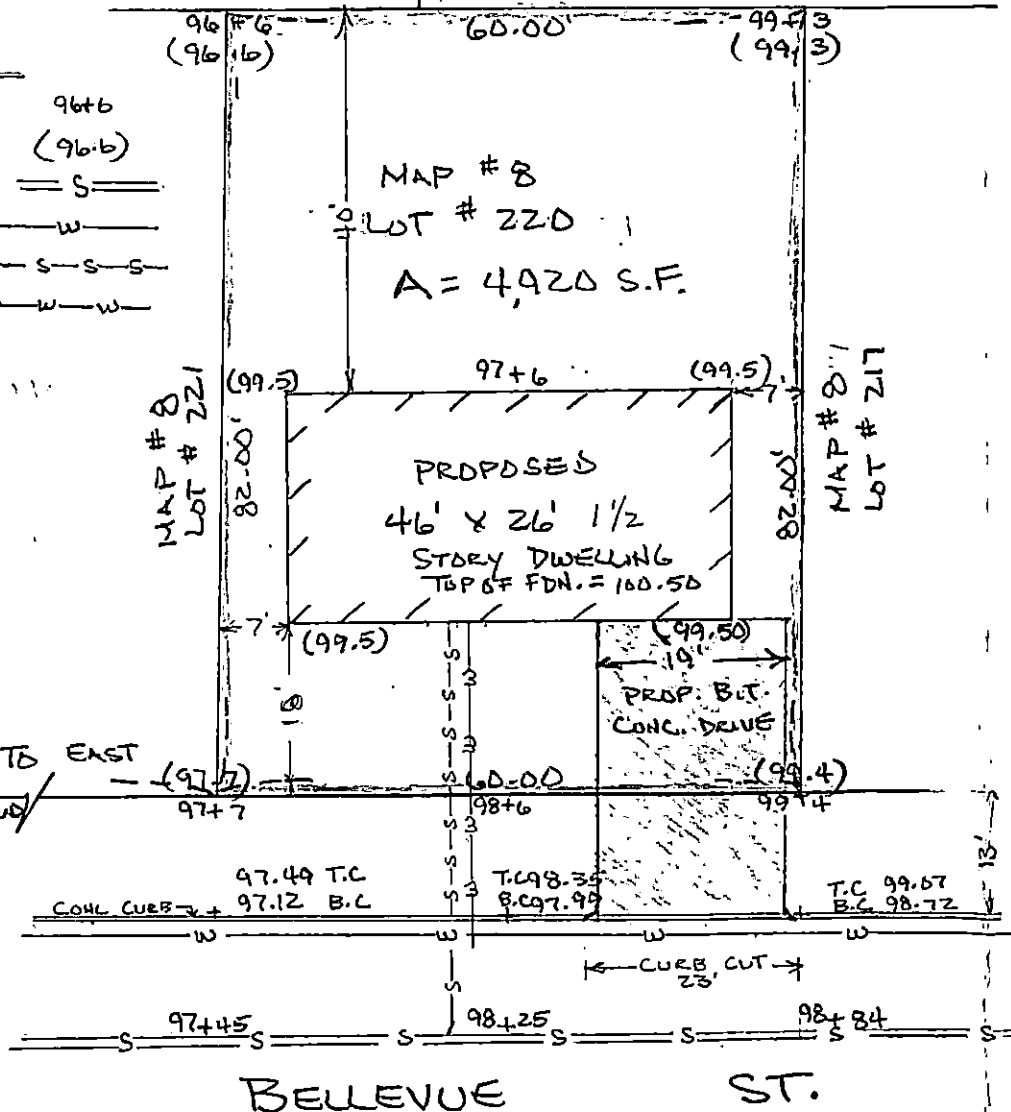 96+6 60.00' 99+3
(96.6) (99.3)
96+6
(96.6)
S
W
S S S
W W
MAP #8
LOT # 220
A = 4,920 S.F.
MAP #8
LOT # 221
82.00'
(99.5) 97+6 (99.5) 7'
MAP #8
LOT # 217
82.00'
PROPOSED
46' X 26' 1 1/2
STORY DWELLING
TOP OF FDN. = 100.50
7' (99.5) (99.50)
19'
18'
PROP. BIT.
CONC. DRIVE
S S S S S S
W W W W
TO EAST (97.7) 60.00 (99.4)
97+7 98+6 99+4
13'
97.49 T.C T.C 98.35 T.C 99.07
CONC. CURB 97.12 B.C B.C 97.99 B.C 98.72
W W W W
CURB CUT
23'
S
97+45 98+25 98+84
S S S S S S S
BELLEVUE ST.